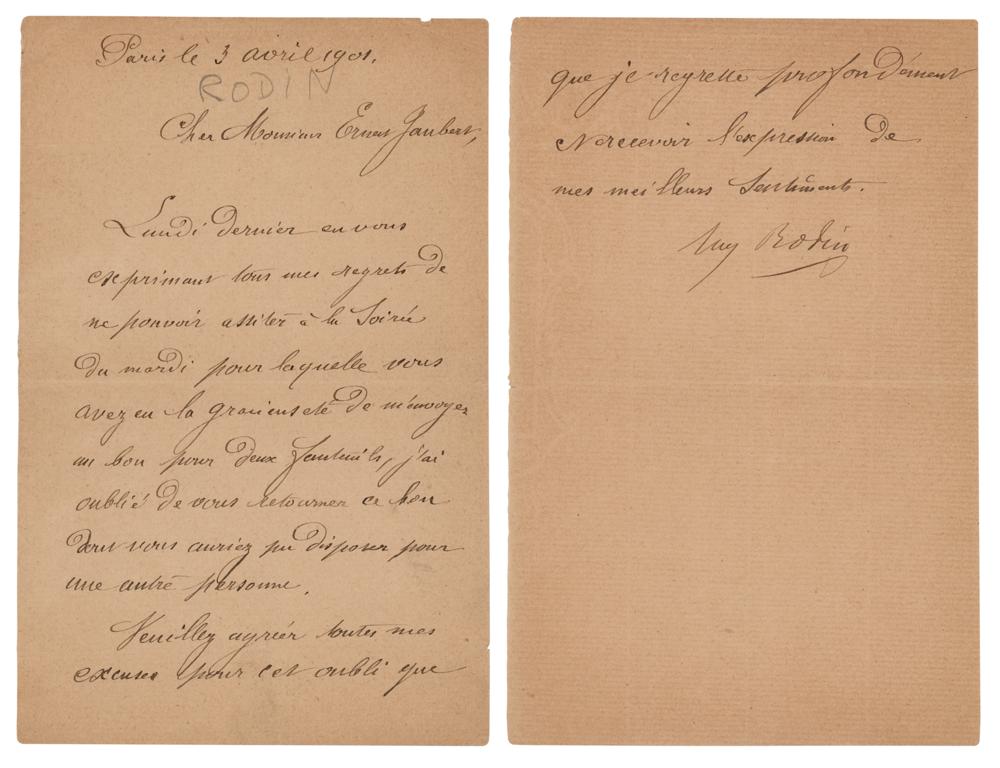 Paris le 3 avril 1901.
RODIN
Cher Monsieur Ernest Jaubert,
Lundi dernier en vous
exprimant tous mes regrets de
ne pouvoir assiter à la Soirée
du mardi pour laquelle vous
avez eu la gracieuseté de m'envoyer
un bon pour deux fauteuils, j'ai
oublié de vous retourner ce bon
dont vous auriez pu disposer pour
une autre personne.
Veuillez agréer toutes mes
excuses pour cet oubli que
que je regrette profondément
et recevoir l'expression de
mes meilleurs Sentiments.
Aug Rodin